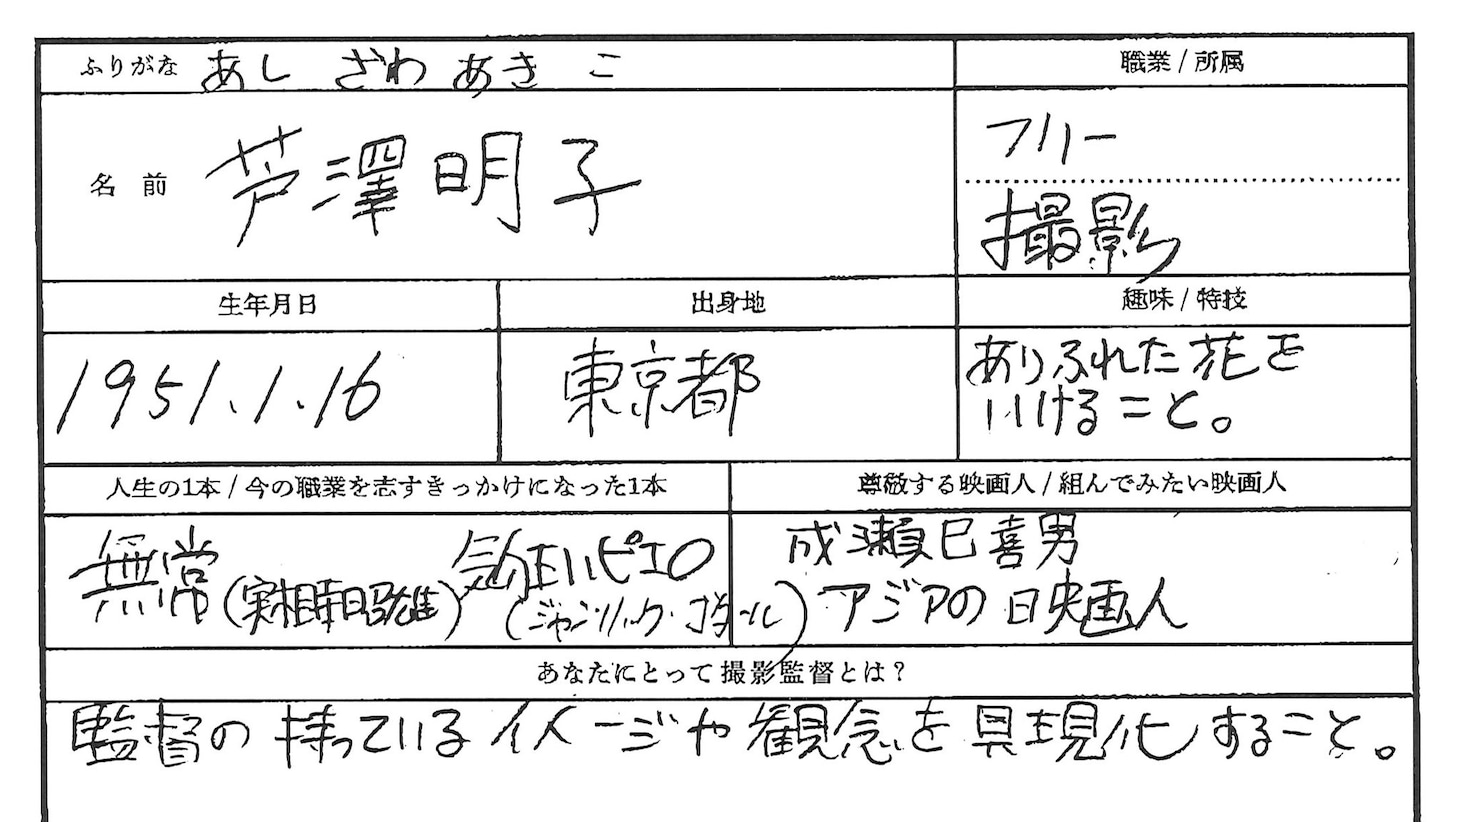 ふりがな あし ざわ あき こ
職業 / 所属
名 前 芦澤明子
フリー
撮影
生年月日
出身地
趣味 / 特技
1951.1.16
東京都
ありふれた花を
いけること。
人生の1本 / 今の職業を志すきっかけになった1本
尊敬する映画人 / 組んでみたい映画人
無常 (実相寺昭雄)
気狂いピエロ
(ジャン・リュック・ゴダール)
成瀬巳喜男
アジアの映画人
あなたにとって撮影監督とは?
監督の持っているイメージや観念を具現化すること。